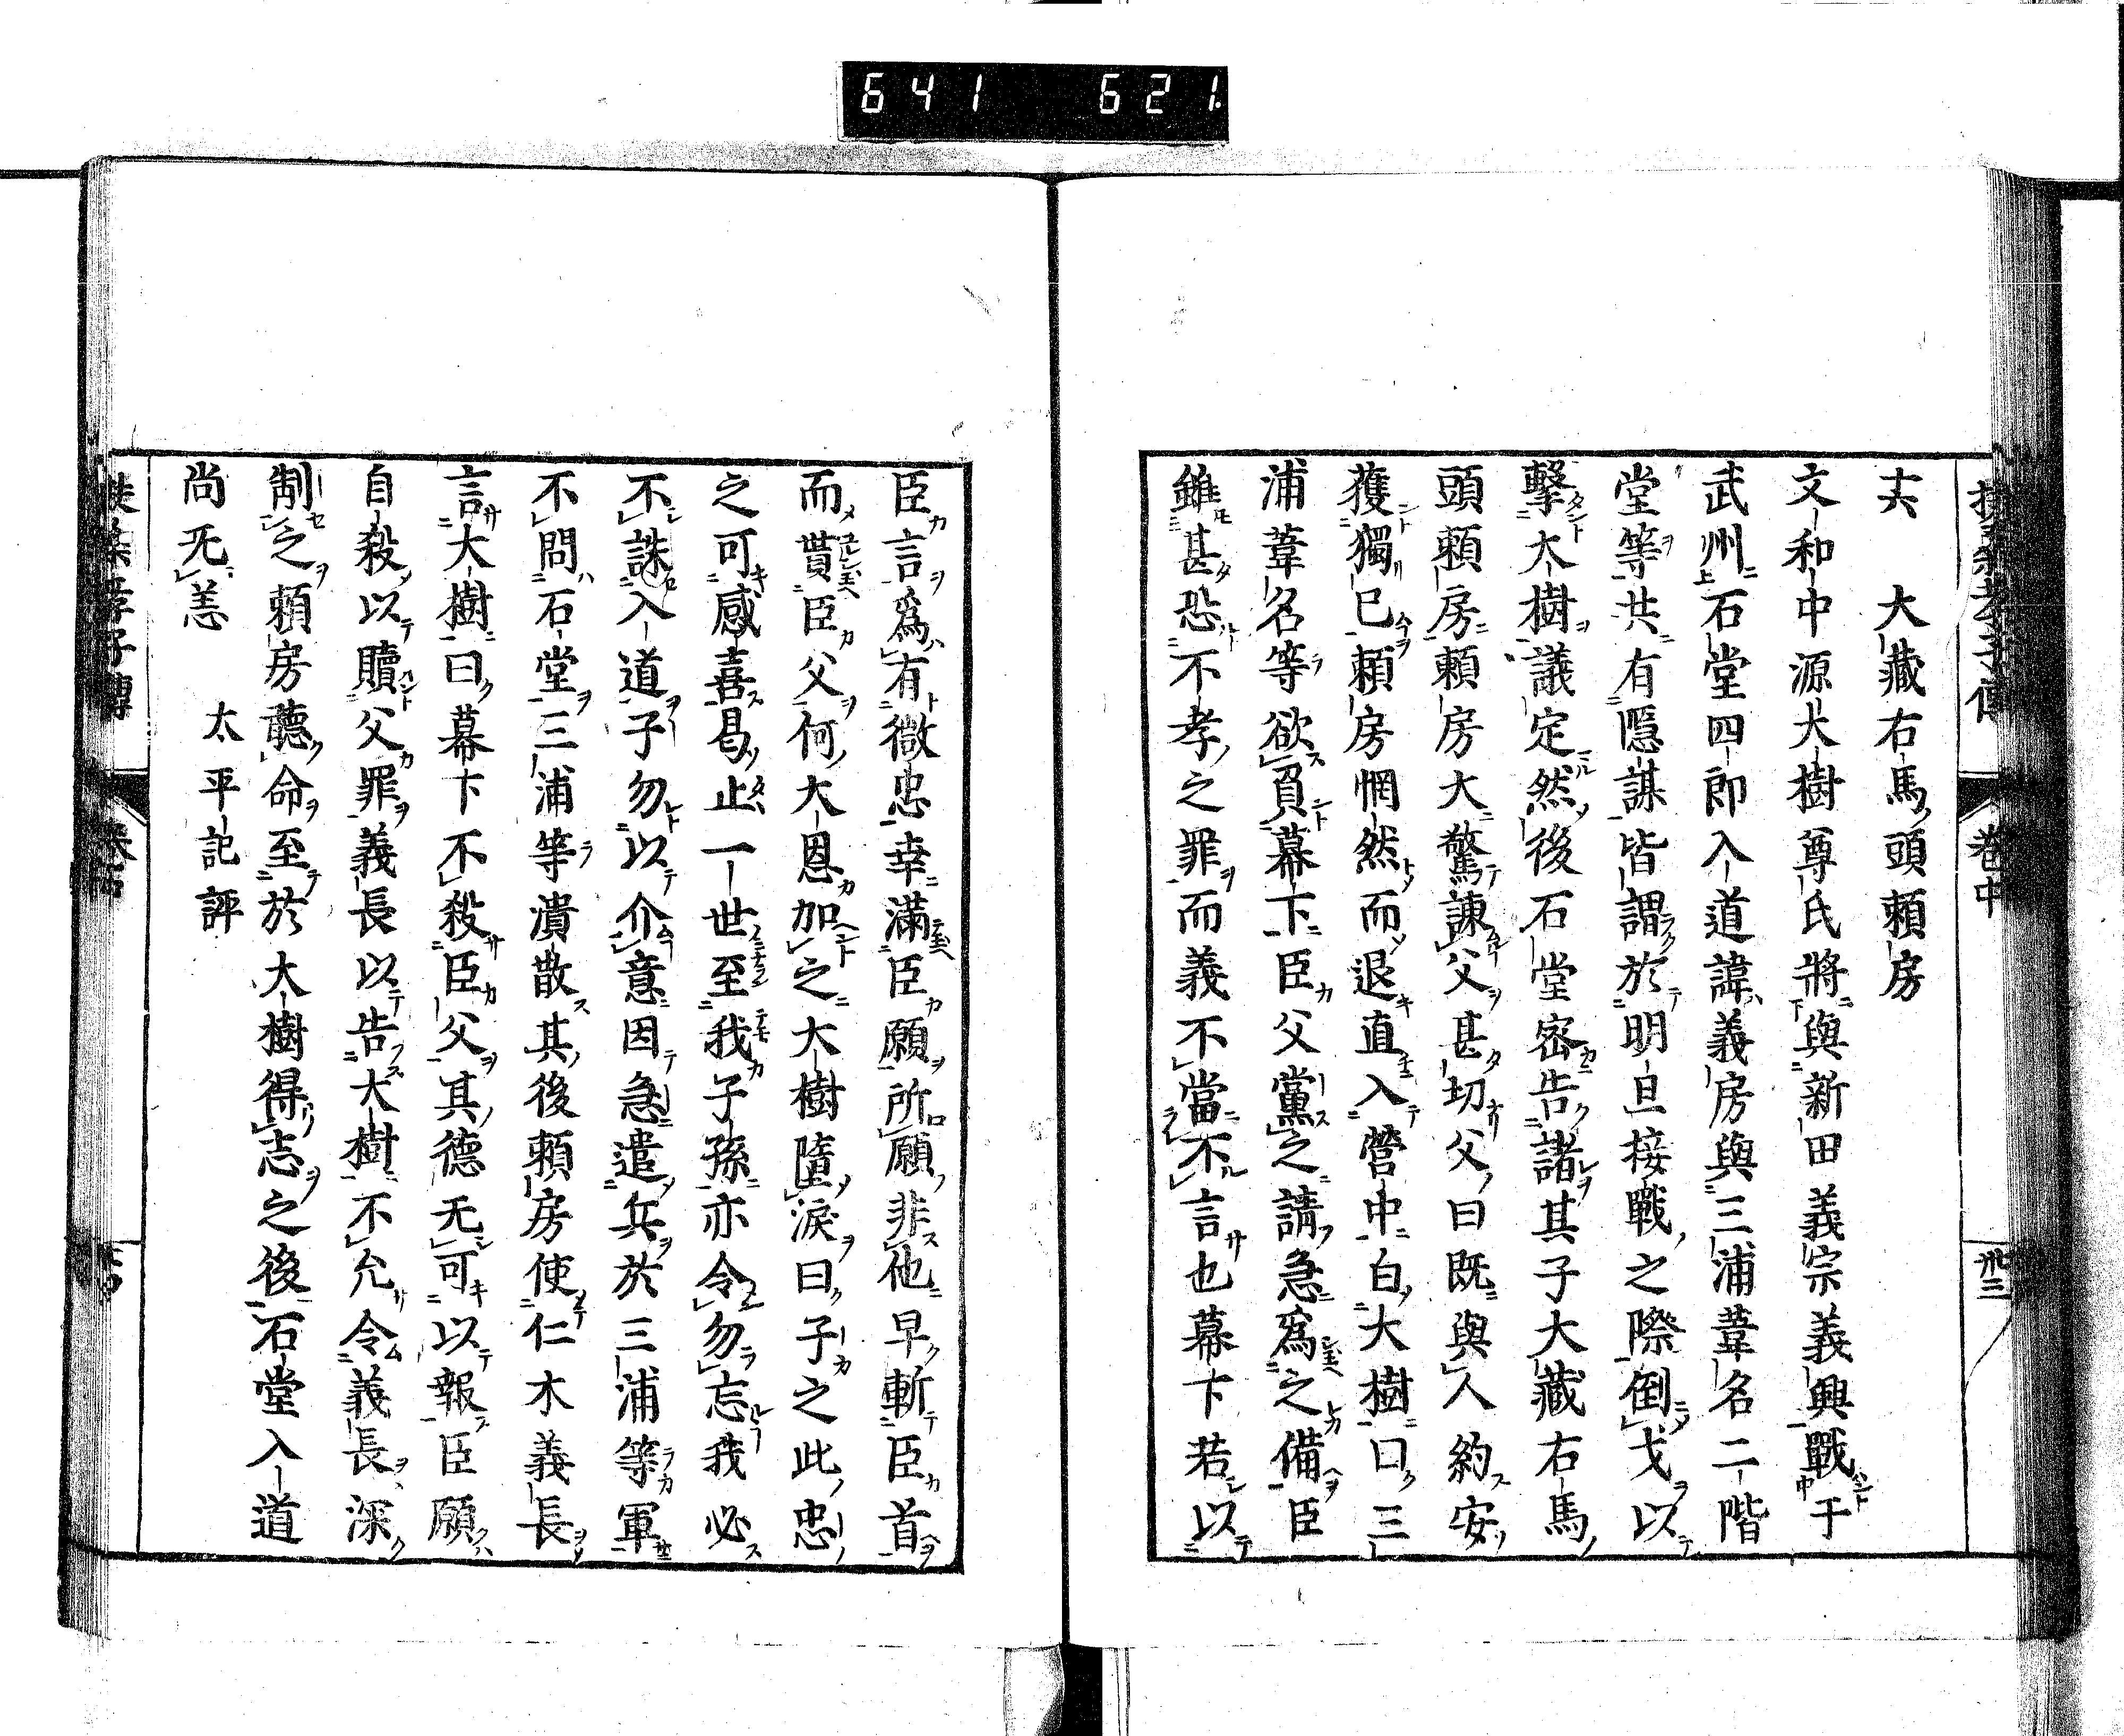 641 621.
卷中
卅三
夫 大藏右馬頭賴房
文和中源大樹尊氏將與新田義宗義興戰于
武州石堂四郎入道諱義房與三浦葦名二階
堂等共有隱謀皆謂於明旦接戰之際倒戈以
擊大樹議定然後石堂密告諸其子大藏右馬
頭賴房賴房大驚諫父甚切父曰既與人約安
獲獨已賴房惘然而退直入營中白大樹口三
浦葦名等欲負幕下臣父黨之請急爲之備臣
雖甚恐不孝之罪而義不當不言也幕下若以
臣言爲有微忠幸滿臣願所願非他早斬臣首
而貰臣父何大恩加之大樹墮淚曰子之此忠
之可感喜曷止一世至我子孫亦令勿忘我必
不誅入道子勿以介意因急遣兵於三浦等軍
不問石堂三浦等潰散其後賴房使仁木義長
言大樹曰幕下不殺臣父其德无可以報臣願
自殺以贖父罪義長以告大樹不允令義長深
制之賴房聽命至於大樹得志之後石堂入道
尚无恙 太平記評